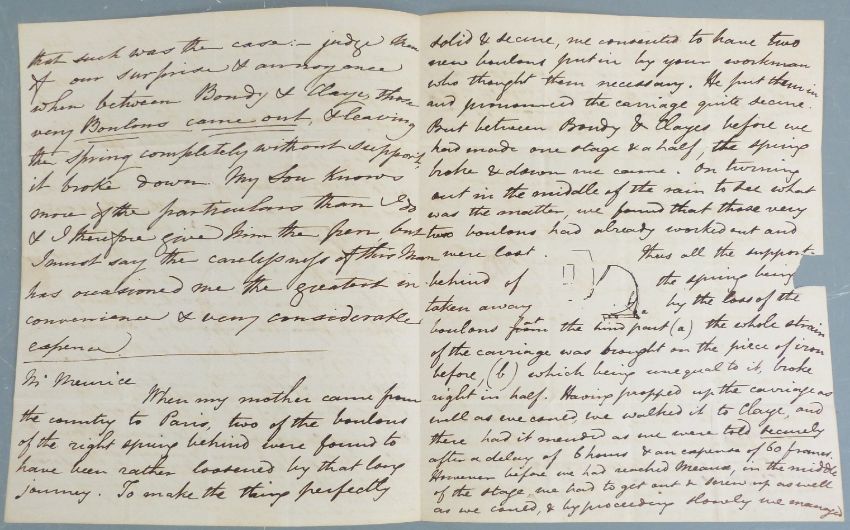 that such was the case :- judge then
of our surprise & annoyance
when between Bondy & Claye, those
very Boulons came out, & leaving
the spring completely without support,
it broke down. My Son Knows
more of the particulars than I do
& I therefore give him the pen but
I must say the carelessness of this Man
has occasioned me the greatest in-
convenience & very considerable
expence.
Mr Meurice
When my mother came from
the country to Paris, two of the boulons
of the right spring behind were found to
have been rather loosened by that long
journey. To make the thing perfectly
solid & secure, we consented to have two
new boulons put in by your workman
who thought them necessary. He put them in
and pronounced the carriage quite secure.
But between Bondy & Clayes before we
had made one stage & a half, the spring
broke & down we came. On turning
out in the middle of the rain to see what
was the matter, we found that those very
two boulons had already worked out and
were lost. Thus all the support
behind of the spring being
taken away by the loss of the
boulons from the hind part (a) the whole strain
of the carriage was brought on the piece of iron
before, (b) which being unequal to it, broke
right in half. Having propped up the carriage as
well as we could, we walked it to Claye, and
there had it mended as we were told securely
after a delay of 6 hours & an expense of 60 francs.
However before we had reached Meaux, in the middle
of the stage, we had to get out & screw up as well
as we could, & by proceeding slowly we managed